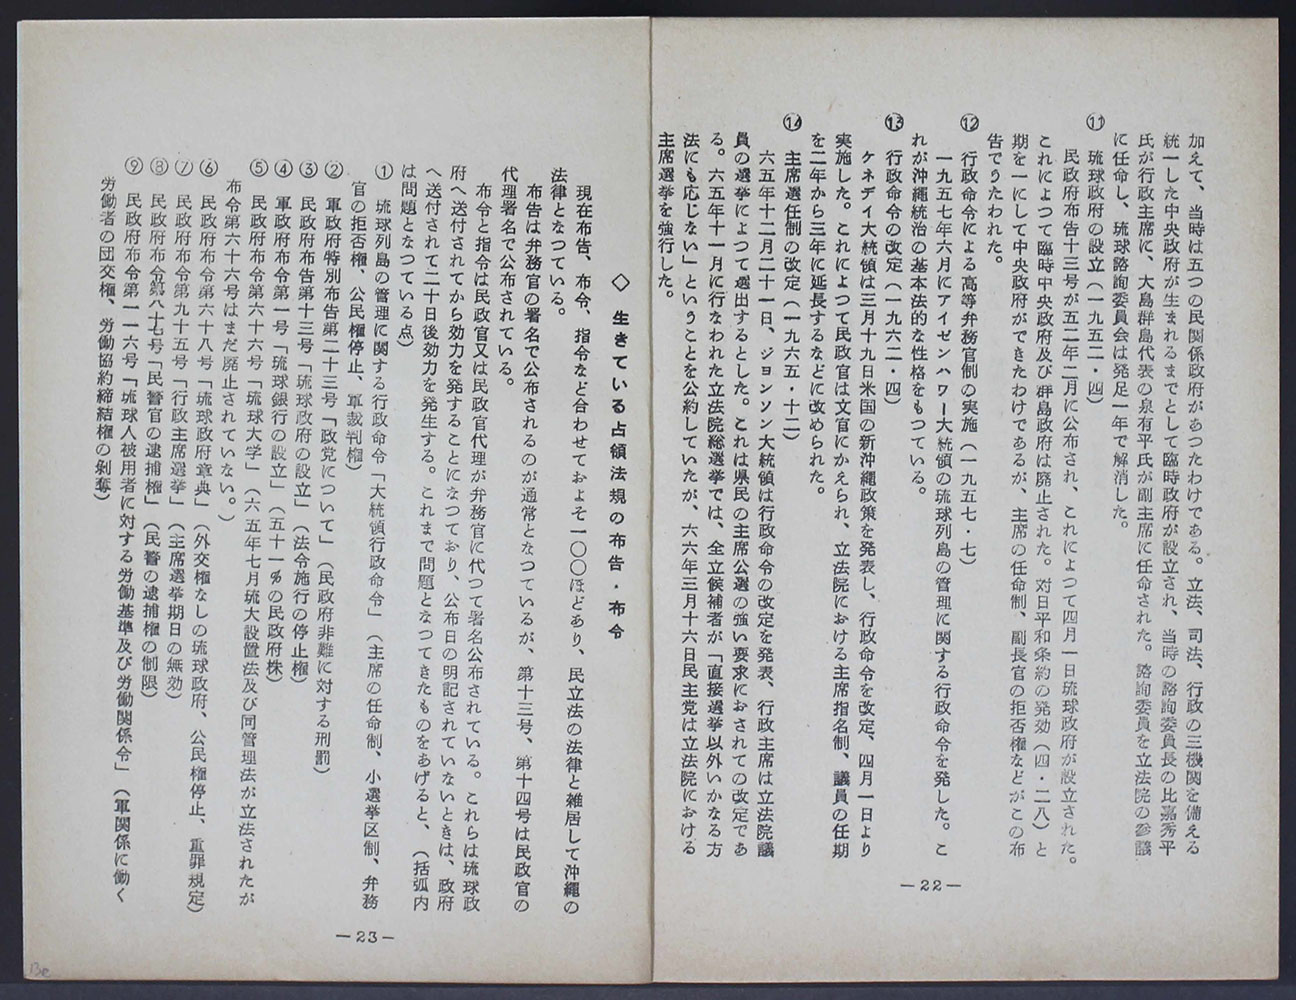 加えて、当時は五つの民関係政府があつたわけである。立法、司法、行政の三機関を備える
統一した中央政府が生まれるまでとして臨時政府が設立され、当時の諮詢委員長の比嘉秀平
氏が行政主席に、大島群島代表の泉有平氏が副主席に任命された。諮詢委員を立法院の参議
に任命し、琉球諮詢委員会は発足一年で解消した。
⑪ 琉球政府の設立(一九五二・四)
民政府布告十三号が五二年二月に公布され、これによつて四月一日琉球政府が設立された。
これによつて臨時中央政府及び群島政府は廃止された。対日平和条約の発効(四・二八)と
期を一にして中央政府ができたわけであるが、主席の任命制、副長官の拒否権などがこの布
告でうたわれた。
⑫ 行政命令による高等弁務官制の実施(一九五七・七)
一九五七年六月にアイゼンハワー大統領の琉球列島の管理に関する行政命令を発した。こ
れが沖縄統治の基本法的な性格をもつている。
⑬ 行政命令の改定(一九六二・四)
ケネデイ大統領は三月十九日米国の新沖縄政策を発表し、行政命令を改定、四月一日より
実施した。これによつて民政官は文官にかえられ、立法院における主席指名制、議員の任期
を二年から三年に延長するなどに改められた。
⑭ 主席選任制の改定(一九六五・十二)
六五年十二月二十一日、ジョンソン大統領は行政命令の改定を発表、行政主席は立法院議
員の選挙によつて選出するとした。これは県民の主席公選の強い要求におされての改定であ
る。六五年十一月に行なわれた立法院総選挙では、全立候補者が「直接選挙以外いかなる方
法にも応じない」ということを公約していたが、六六年三月十六日民主党は立法院における
主席選挙を強行した。
—22—
◇ 生きている占領法規の布告・布令
現在布告、布令、指令など合わせておよそ一〇〇ほどあり、民立法の法律と雑居して沖縄の
法律となつている。
布告は弁務官の署名で公布されるのが通常となつているが、第十三号、第十四号は民政官の
代理署名で公布されている。
布令と指令は民政官又は民政官代理が弁務官に代つて署名公布されている。これらは琉球政
府へ送付されてから効力を発することになつており、公布日の明記されていないときは、政府
へ送付されて二十日後効力を発生する。これまで問題となつてきたものをあげると、(括弧内
は問題となつている点)
① 琉球列島の管理に関する行政命令「大統領行政命令」(主席の任命制、小選挙区制、弁務
官の拒否権、公民権停止、軍裁判権)
② 軍政府特別布告第二十三号「政党について」(民政府非難に対する刑罰)
③ 民政府布告第十三号「琉球政府の設立」(法令施行の停止権)
④ 軍政府布令第一号「琉球銀行の設立」(五十一%の民政府株)
⑤ 民政府布令第六十六号「琉球大学」(六五年七月琉大設置法及び同管理法が立法されたが
布令第六十六号はまだ廃止されていない。)
⑥ 民政府布令第六十八号「琉球政府章典」(外交権なしの琉球政府、公民権停止、重罪規定)
⑦ 民政府布令第九十五号「行政主席選挙」(主席選挙期日の無効)
⑧ 民政府布令第八十七号「民警官の逮捕権」(民警の逮捕権の制限)
⑨ 民政府布令第一一六号「琉球人被用者に対する労働基準及び労働関係令」(軍関係に働く
労働者の団交権、労働協約締結権の剝奪)
—23—